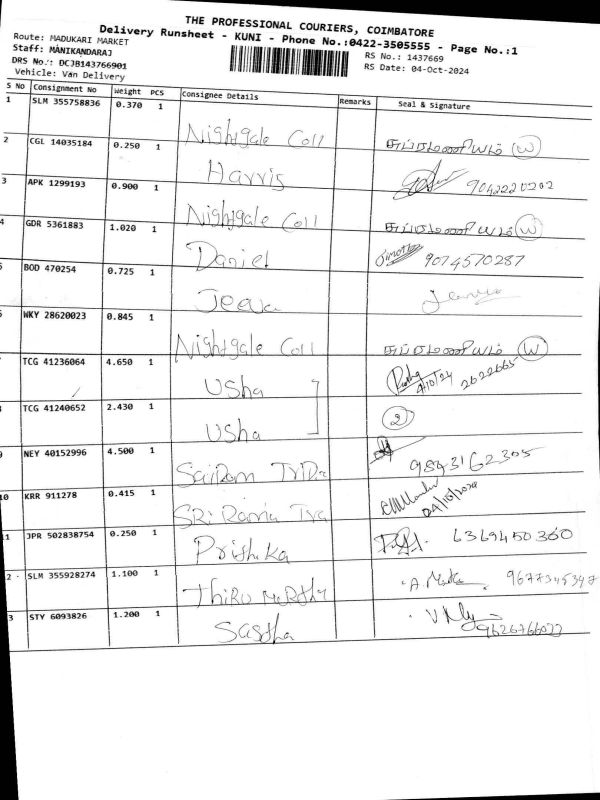 THE PROFESSIONAL COURIERS, COIMBATORE
Delivery Runsheet - KUNI - Phone No.:0422-3505555 - Page No.:1
Route: MADUKARI MARKET
Staff: MANIKANDARAJ
DRS No.: DCJB143766901
Vehicle: Van Delivery
RS No.: 1437669
RS Date: 04-Oct-2024
S No Consignment No Weight PCS Consignee Details Remarks Seal & Signature
1 SLM 355758836 0.370 1 Nightgale Coll சுப்ரமணியம் W
2 CGL 14035184 0.250 1 Harris 9042220202
3 APK 1299193 0.900 1 Nightgale Coll சுப்ரமணியம் W
4 GDR 5361883 1.020 1 Daniel 9074570287
BOD 470254 0.725 1 Jeeva
WKY 28620023 0.845 1 Nightgale Coll சுப்ரமணியம் W
TCG 41236064 4.650 1 Usha 4/10/24 2622665
TCG 41240652 2.430 1 Usha 2
9 NEY 40152996 4.500 1 SaiRam 9893162305
10 KRR 911278 0.415 1 SRi Rama 04/10/2024
1 JPR 502838754 0.250 1 Prishika 6369450360
2 SLM 355928274 1.100 1 Thiru Murthy 9677345347
3 STY 6093826 1.200 1 Sastha 9626766077